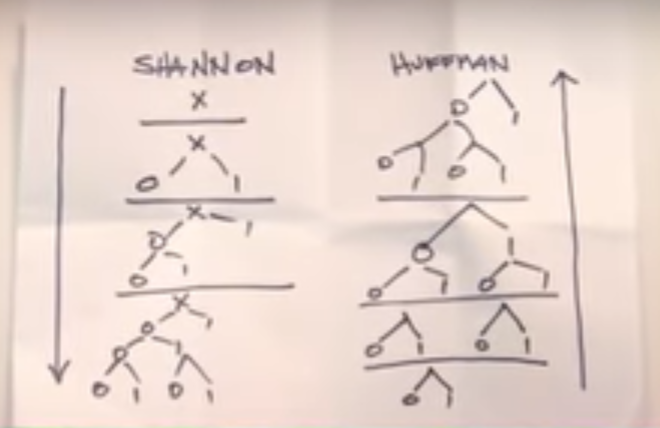 SHANNON
X
X
0 1
X
0 1
0 1
X
0 1
0 1
0 1 0 1
HUFFMAN
0 1
0 1 0 1
0 1
0 1 0 1
0 1 0 1
0 1